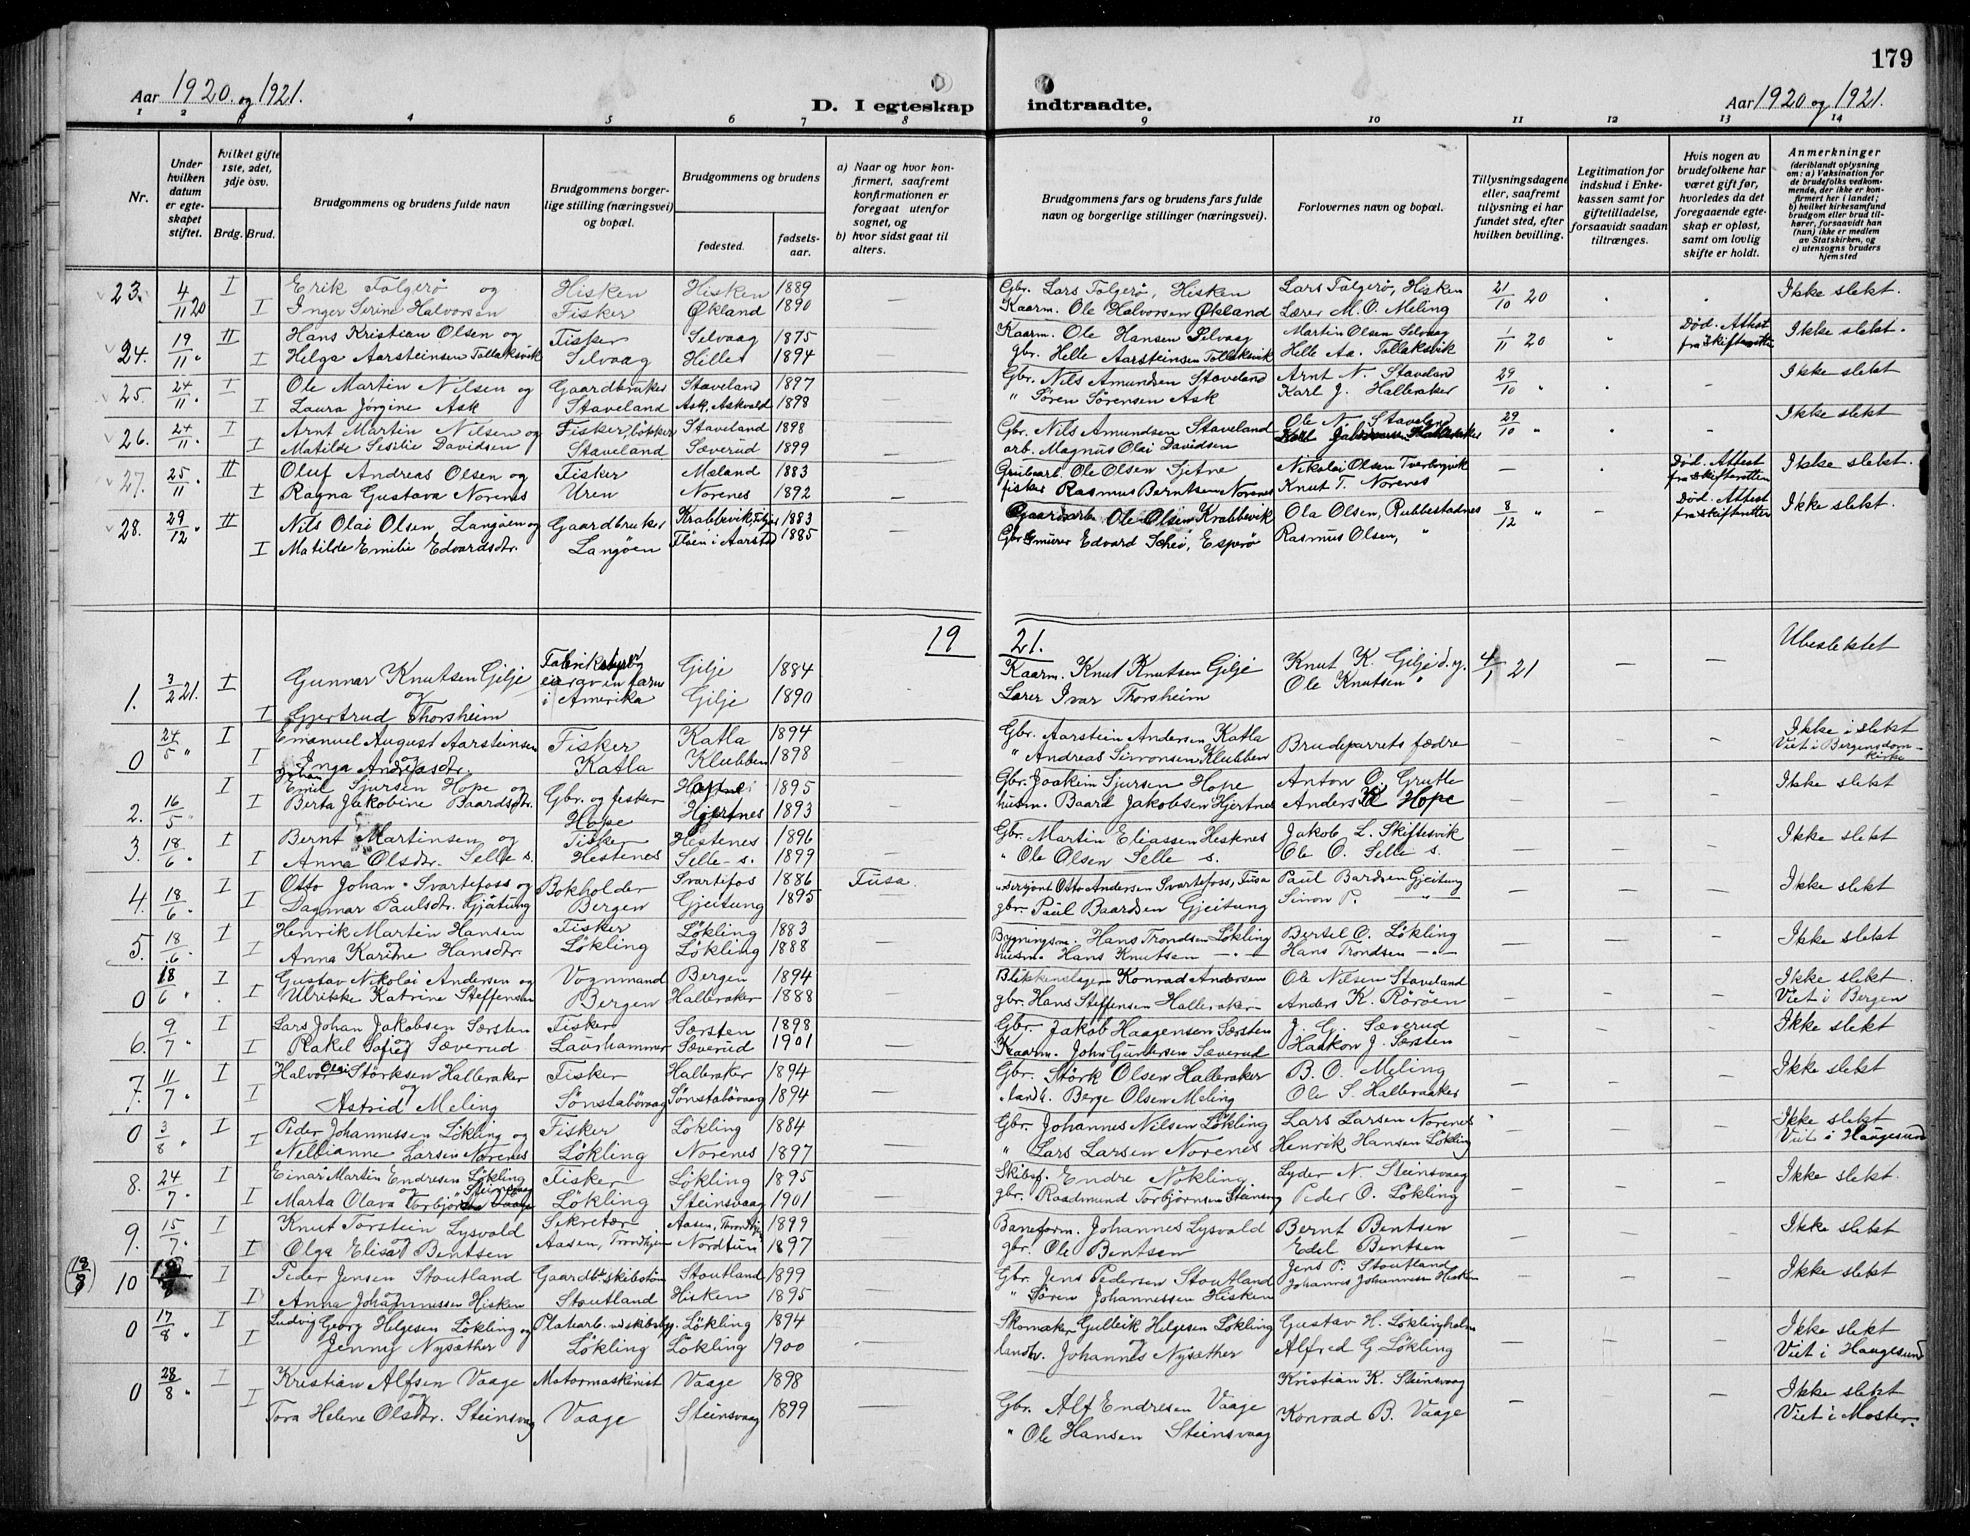 179
Aar 1920 og 1921.
D. I egteskap indtraadte.
Aar 1920 og 1921.
1 2 3 4 5 6 7 8 9 10 11 12 13 14
Nr.
Under hvilken datum er egteskapet stiftet.
Hvilket gifte 1ste, 2det, 3dje osv.
Brdg. Brud.
Brudgommens og brudens fulde navn
Brudgommens borgerlige stilling (næringsvei) og bopæl.
Brudgommens og brudens
fødested.
fødselsaar.
a) Naar og hvor konfirmert, saafremt konfirmationen er foregaat utenfor sognet, og
b) hvor sidst gaat til alters.
Brudgommens fars og brudens fars fulde navn og borgerlige stillinger (næringsvei).
Forlovernes navn og bopæl.
Tillysningsdagene eller, saafremt tillysning ei har fundet sted, efter hvilken bevilling.
Legitimation for indskud i Enkekassen samt for giftetilladelse, forsaavidt saadan tiltrænges.
Hvis nogen av brudefolkene har været gift før, hvorledes da det foregaaende egteskap er opløst, samt om lovlig skifte er holdt.
Anmerkninger (deriblandt oplysning om: a) Vaksination for de brudefolks vedkommende, der ikke er konfirmert her i landet; b) hvilket kirkesamfund brudgom eller brud tilhører, forsaavidt han (hun) ikke er medlem av Statskirken, og c) utensogns bruders hjemsted
23. 4/11 20 I Erik Folgerø og Hisken Hisken 1889 Gbr. Lars Folgerø, Hisken Lars Folgerø, Hisken 21/10 20 Ikke slekt.
I Inger Serine Halvorsen Fisker Økland 1890 — Kaarm. Ole Halvorsen Økland Lærer M. O. Meling
24. 19/11 " II Hans Kristian Olsen og Fisker Selvaag 1875 Kaarm. Ole Hansen Selvaag Martin Olsen Selvaag 1/11 20 Død. Attest fra Skifteretten Ikke slekt.
I Helga Aarsteinsen Tollaksvik Selvaag Helle 1894 — gbr. Helle Aarsteinsen Tollaksvik Helle Aa. Tollaksvik
25. 24/11 " I Ole Martin Nilsen og Gaardbruker Staveland 1897 Gbr. Nils Amundsen Staveland Arnt N. Staveland 29/10 " Ikke slekt
I Laura Jørgine Ask Staveland Ask, Askvold 1898 — " Søren Sørensen Ask Karl J. Halleraker
26. 24/11 " I Arnt Martin Nilsen og Fisker, bøkker Staveland 1898 Gbr. Nils Amundsen Staveland Ole N. Staveland 29/10 " Ikke slekt
I Matilde Sesilie Davidsen Staveland Sæverud 1899 arb. Magnus Olai Davidsen Karl Halleraker
27. 25/11 " II Oluf Andreas Olsen og Fisker Meland 1883 Grubearb. Ole Olsen Nikolai Olsen Tverborgvik — Død. Attest fra skifteretten Ikke slekt.
I Ragna Gustava Norenes Uren Norenes 1892 — fisker Rasmus Berntsen Norenes Knut T. Norenes
28. 29/12 " II Nils Olai Olsen, Langøen og Gaardbruker Krabbevik, 1883 Gaardarb. Ole Olsen Krabbevik Ola Olsen, Rubbestadnes 8/12 " — Død. Attest fra skifteretten Ikke slekt.
I Matilde Emilie Edvardsdtr. Langøen Fløen i Aarstad 1885 Edvard Esperø Rasmus Olsen, "
1921.
1. 3/2 21. I Gunnar Knutsen Gilje i Amerika Gilje 1884 Kaarm. Knut Knutsen Gilje Knut K. Gilje d.y. 4/1 21 — — Ubeslektet
I og Gjertrud Thorsheim Gilje 1890 Lærer Ivar Thorsheim Ole Knutsen "
0 24/5 " I Emanuel August Aarsteinsen Fisker Katla 1894 Gbr. Aarstein Andersen Katla Brudeparrets fædre — — — Ikke i slekt
I og Inga Andreasdtr. Katla Klubben 1898 " Andreas Simonsen Klubben Viet i Bergensdomkirke
2. 16/5 " I Johan Emil Sjursen Hope og Gbr. og fisker 1895 Gbr. Joakim Sjursen Hope Anton O. Grutle — — — Ikke slekt
I Berta Jakobine Baardsdtr. Hope Hjertnes 1893 husm. Baard Jakobsen Hjertnes Anders K Hope
3. 18/6 " I Bernt Martinsen og Fisker Hestenes 1896 — Gbr. Martin Eliassen Hestnes Jakob L. Skiftesvik — — — Ikke slekt
I Anna Olsdtr. Selle s. Hestenes Selle s. 1899 " Ole Olsen Selle s. Ole O. Selle s.
4. 18/6 " I Otto Johan Svartefoss og Bokholder Svartefos 1886 Fusa sersjant Otto Andersen Svartefoss, Fusa Paul Bardsen Gjeitung — — — Ikke slekt
I Dagmar Paulsdtr. Gjätung Bergen Gjeitung 1895 gbr. Paul Baardsen Gjeitung Simon P. — " —
5. 18/6 " I Henrik Martin Hansen Fisker Løkling 1883 — Bygningsm. Hans Trondsen Løkling Bertel O. Løkling — — — Ikke slekt
I og Anna Karine Hansdtr. Løkling Løkling 1888 husm. Hans Knutsen — " — Hans Trondsen — " —
0 18/6 " I Gustav Nikolai Andersen og Vognmand Bergen 1894 Blikkenslager Konrad Andersen Ole Nilsen Staveland — — — Ikke slekt.
I Ulrikke Katrine Steffensen Bergen Halleraker 1888 gbr. Hans Steffensen Halleraker Anders K. Rörøen Viet i Bergen
6. 9/7 " I Lars Johan Jakobsen Sørsten Fisker Sørsten 1898 Gbr. Jakob Haagensen Sørsten J. G. Sæverud — — — Ikke slekt
I og Rakel Sofie Sæverud Laurhammer Sæverud 1901 Kaarm. John Gundersen Sæverud Haakon J. Sørsten
7. 11/7 " I Halvor Olai Størksen Halleraker Fisker Halleraker 1894 Gbr. Størk Olsen Halleraker B. O. Meling — — — Ikke slekt
I og Astrid Meling Sønstabøvaag Sønstabøvaag 1894 Landh. Berge Olsen Meling Ole S. Halleraaker
0 3/8 " I Peder Johannessen Løkling og Fisker Løkling 1884 — Gbr. Johannes Nilsen Løkling Lars Larsen Norenes — — Ikke slekt
I Nellianne Larsen Norenes Løkling Norenes 1897 " Lars Larsen Norenes Henrik Hansen Løkling Viet i Haugesund
8. 24/7 " I Einar Martin Endresen Løkling Fisker Løkling 1895 — Skibsf. Endre Nökling Lyder N Steinsvaag — — — Ikke slekt.
I og Marta Olava Steinsvaag Løkling Steinsvaag 1901 gbr. Raadmund Torbjørnsen Steinsvaag Peder O. Løkling
9. 15/7 " I Knut Torstein Lysvold Sekretær Aasen, Trondhjem 1899 Baneform. Johannes Lysvold Bernt Bentsen — — — Ikke slekt
I og Olga Elisa Bentsen Aasen, Trondhjem Nordtun 1897 gbr. Ole Bentsen Edel Bentsen
10 I Peder Jensen Stoutland Gaardbr. skibstøm Stoutland 1899 — Gbr. Jens Pedersen Stoutland Jens P. Stoutland — — — Ikke slekt
I og Anna Johannessen Hisken Stoutland Hisken 1895 " Søren Johannessen Hisken Johannes Johannessen Hisken
0 17/8 " I Ludvig Georg Helgesen Løkling og Platearb. ved skibsbyg. Løkling 1894 Skomaker Gulleik Helgesen Løkling Gustav H. Løklingholm — — — Ikke slekt
I Jenny Nysæther Løkling Løkling 1900 landh. Johannes Nysæther Alfred G Løkling Viet i Haugesund
0 28/8 " I Kristian Alfsen Vaage Motormaskinist Vaage 1898 — Gbr. Alf Endresen Vaage Kristian K. Steinsvaag — — — Ikke slekt
I og Tora Helene Olsdtr. Steinsvaag Vaage Steinsvaag 1899 " Ole Hansen Steinsvaag Konrad B. Vaage Viet i Moster.